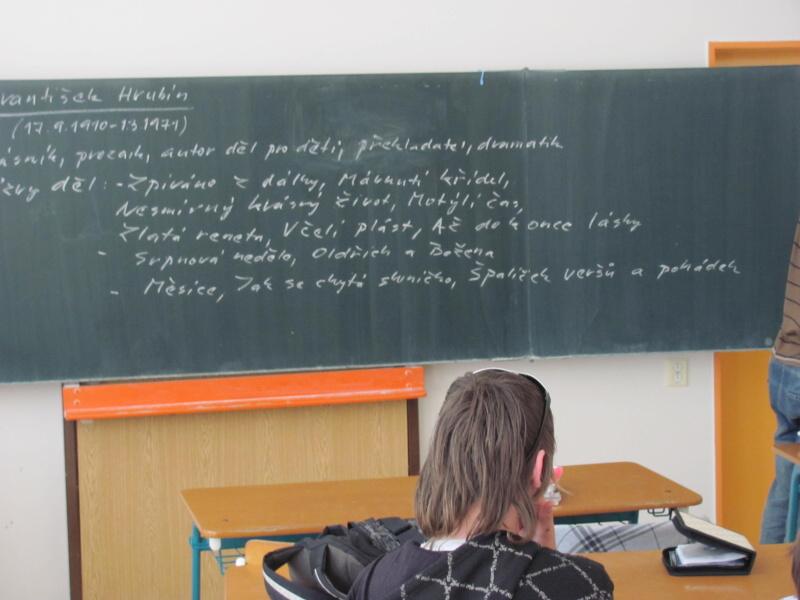 rantišek Hrubín
(17.9.1910-1.3.1971)
ásník, prozaik, autor děl pro děti, překladatel, dramatik
zvy děl: - Zpíváno z dálky, Mávnutí křídel,
Nesmírný krásný život, Motýlí čas,
Zlatá reneta, Včelí plást, Až do konce lásky
- Srpnová neděle, Oldřich a Božena
- Měsíce, Jak se chytá sluníčko, Špalíček veršů a pohádek